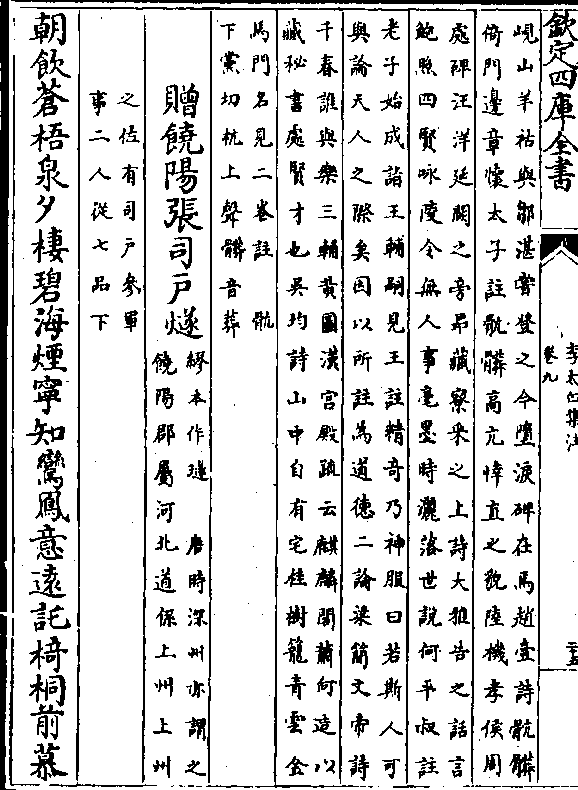 欽定四庫全書
李太白集注
卷九
峴山羊祜與鄒湛嘗登之今墮淚碑在焉趙壹詩骯髒
倚門邊章懷太子註骯髒高亢婞直之貌陸機孝侯周
處碑汪洋廷闕之旁昂藏寮寀之上詩大雅告之話言
鮑照四賢咏陵令無人事毫墨時灑落世說何平叔註
老子始成詣王輔嗣見王註精奇乃神服曰若斯人可
與論天人之際矣因以所註為道德二論梁簡文帝詩
千春誰與樂三輔黄圖漢宮殿疏云麒麟閣蕭何造以
藏秘書處賢才也吳均詩山中自有宅桂樹籠青雲金
馬門名見二卷註 骯
下黨切杭上聲髒音葬
贈饒陽張司戶燧
繆本作璲 唐時深州亦謂之
饒陽郡屬河北道係上州上州
之佐有司戶參軍
事二人從七品下
朝飲蒼梧泉夕棲碧海煙寧知鸞鳳意遠託椅桐前慕